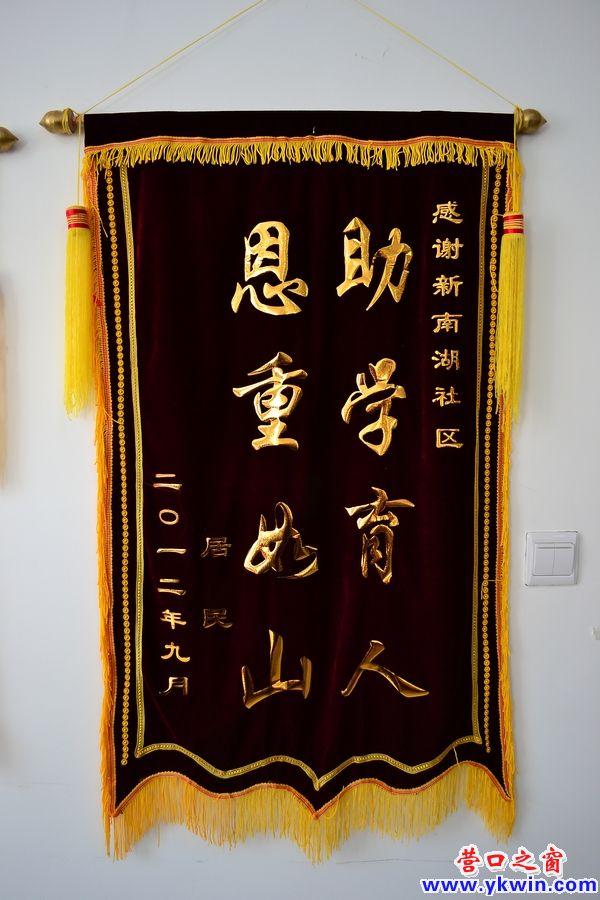 感谢新南湖社区
助学育人
恩重如山
居民
二〇一二年九月
营口之窗
www.ykwin.com